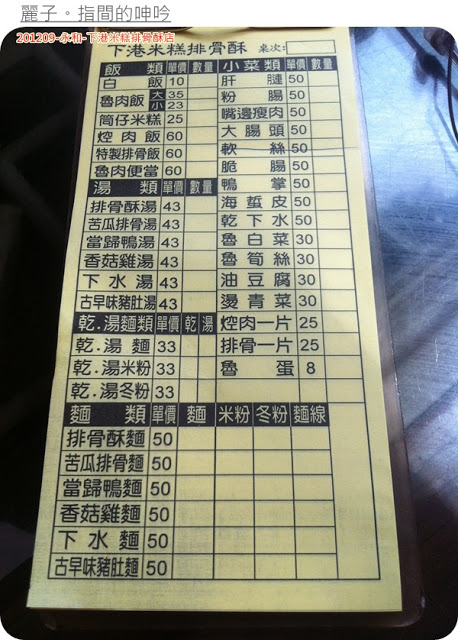 麗子。指間的呻吟
201209-永和-下港米糕排骨酥店
下港米糕排骨酥 桌次:
飯 類 單價 數量 小菜類 單價 數量
白飯 10 肝腱 50
魯肉飯 大 35 粉腸 50
小 23 嘴邊瘦肉 50
筒仔米糕 25 大腸頭 50
焢肉飯 60 軟絲 50
特製排骨飯 60 脆腸 50
魯肉便當 60 鴨掌 50
湯 類 單價 數量 海蜇皮 50
排骨酥湯 43 乾下水 50
苦瓜排骨湯 43 魯白菜 30
當歸鴨湯 43 魯筍絲 30
香菇雞湯 43 油豆腐 30
下水湯 43 燙青菜 30
古早味豬肚湯 43 焢肉一片 25
乾.湯麵類 單價 乾 湯 排骨一片 25
乾.湯麵 33 魯蛋 8
乾.湯米粉 33
乾.湯冬粉 33
麵 類 單價 麵 米粉 冬粉 麵線
排骨酥麵 50
苦瓜排骨麵 50
當歸鴨麵 50
香菇雞麵 50
下水麵 50
古早味豬肚麵 50